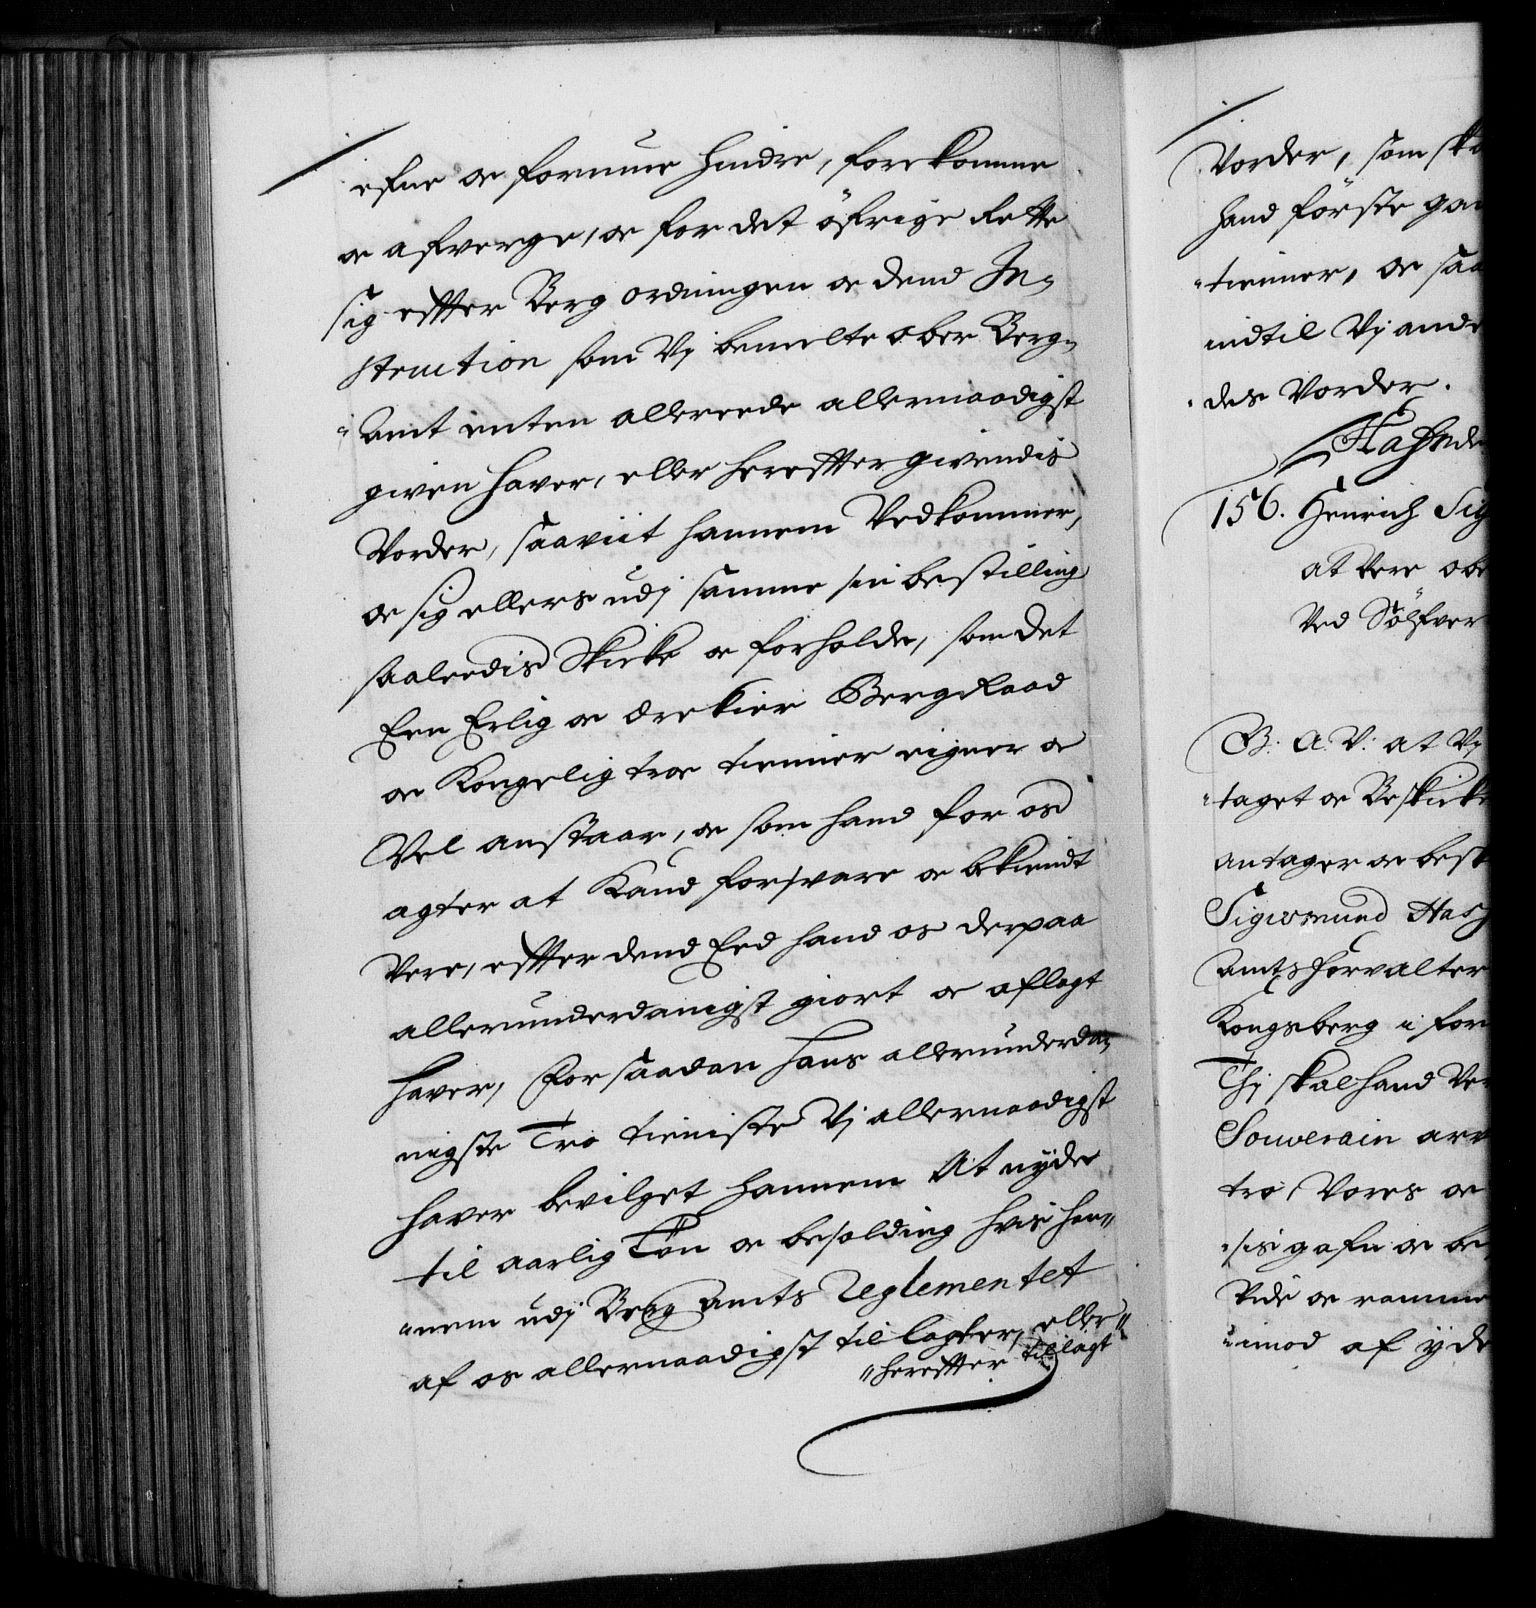 efne oc formue hindre, forekomme
oc afverge, oc for det öfrige Rette
sig effter Berg ordningen oc dend In=
struction som Vj bemelte ober Berg=
=Amt enten allereede allernaadigst
given haver, eller hereffter givendis
Vorder, saaviit hannem Vedkommer,
oc sig ellers udj samme sin bestilling
saaleedis Skicke oc forholde, som det
Een Erlig oc ærekier Berg Raad
oc Kongelig troe tienner eigner oc
Vel anstaar, oc som hand for os
agter at Kand forsvare oc bekiendt
Vere, effter dend Eed hand os derpaa
allerunderdanigst giort oc aflagt
haver, For saadan hans allerunderda=
nigste Tro tieniste Vj allernaadigst
haver bevilget hannem At nyde
til aarlig Lön oc besolding hvis han=
=nem udj Berg Amts Reglementet
af os allernaadigst til lagt er, eller
=hereffter tillagt
Vorder, som sk
hand förste gan
=tienner, oc saa
indtil Vj ande
=des Vorder.
Hafn
156. Henrich Sig
at Vere obe
Ved Sölfver
B: A: V: at Vj
=taget oc Beskicke
antager oc best
Sigismund Has
Amtsforvalter
Kongsberg i for
Thj skal hand Ver
Souverain arv
tro, Vores oc
=sis gafn oc be
Vide oc ramme
=imod af yde